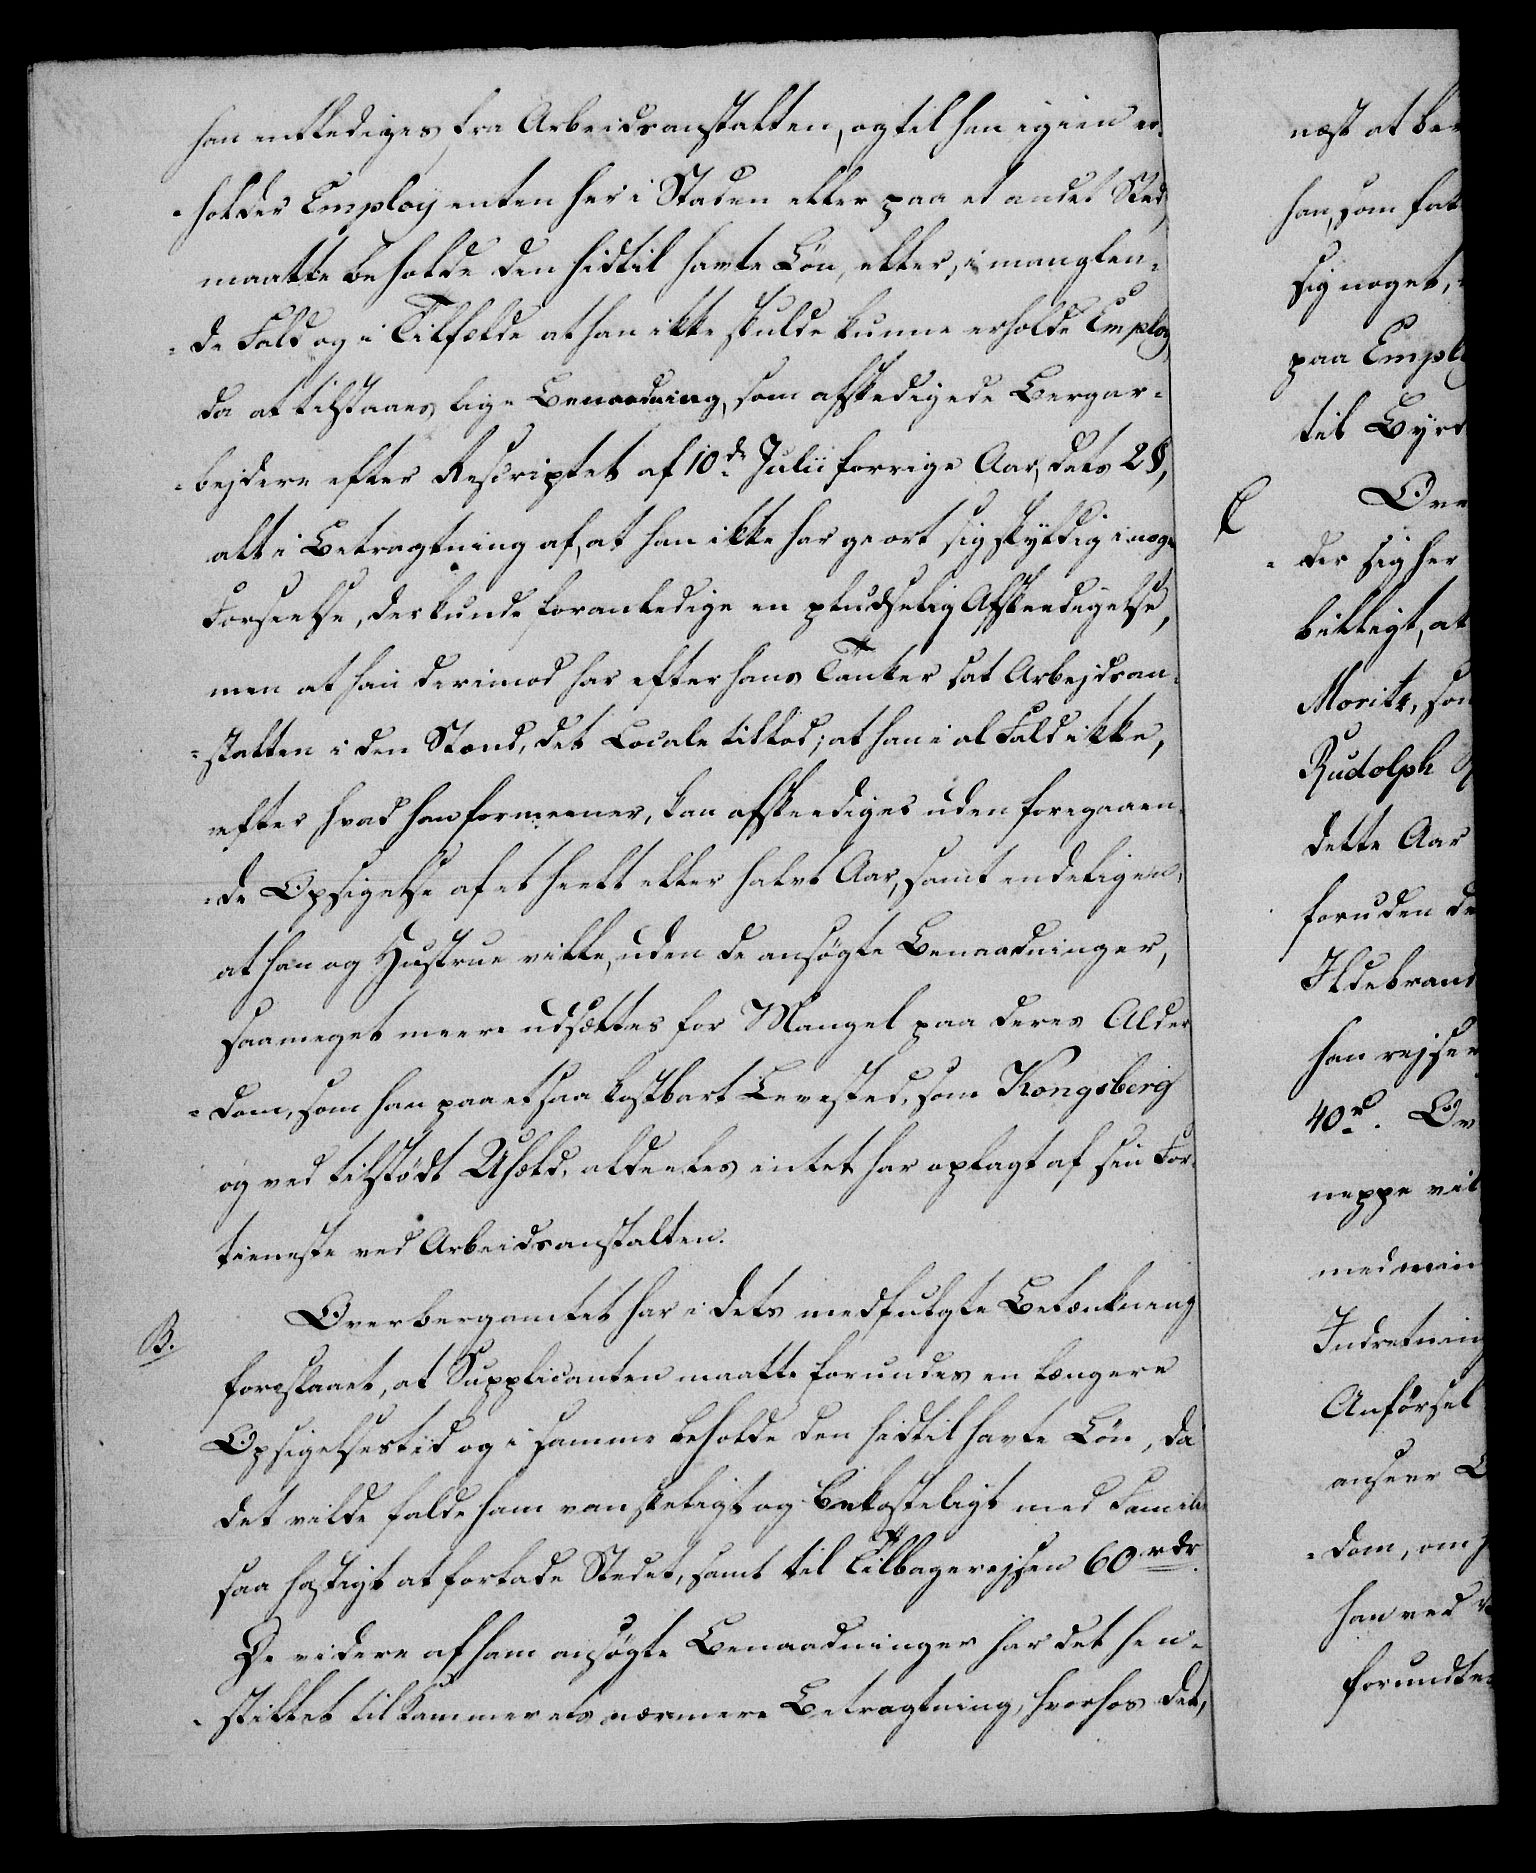 han entlediges fra Arbeidsanstalten, og til han igien er-
-holder Employ enten her i Staden eller paa et andet Sted,
maatte beholde den hidtil havte Løn, eller, i manglen-
-de Fald og i Tilfælde at han ikke skulde kunne erholde Employ,
da at tilstaaes lige Benaadning, som afskedigede Bergar-
-bejdere efter Rescriptet af 10de Julii forrige Aar, dets 2 §,
alt i Betragtning af, at han ikke har giort sig skyldig i nogen
Forseelse, der kunde foranledige en pludselig Afskeedigelse,
men at han derimod har efter hans Tanker sat Arbejdsan-
-stalten i den Stand, det Locale tillod; at han i al Fald ikke,
efter hvad han formeener, kan afskeediges uden foregaaen-
-de Opsigelse af et heelt eller halvt Aar, samt endeligen,
at han og Hustrue ville, uden de ansøgte Benaadninger,
saameget meere udsættes for Mangel paa deres Alder
-dom, som han paa et saa kostbart Levested, som Kongsberg
og ved tilstødt Uheld, aldeeles intet har oplagt af sin For-
tieneste ved Arbeidsanstalten.
B.
Overbergamtet har i dets medfulgte Betænkning
foreslaaet, at Supplicanten maatte forundes en længere
Opsigelsestid og i samme beholde den hidtil havte Løn, da
det vilde falde ham vanskeligt og bekosteligt med Familie
saa hastigt at forlade Stedet, samt til Tilbagerejsen 60 rdr.
De videre af ham ansøgte Benaadninger har det hen-
-stillet til Kammerets nærmere Betragtning, hvorhos det,
næst at be
han, som
sig noget,
paa Empl
til Byr
C
Ove
der sig her
billigt, at
Moritz, som
Rudolph
dette Aar
foruden de
Ildebrand
han rejser
40 rd. Ov
neppe vil
med min
Indretning
Anførsel
anseer
-dom, om
han ved
forundte